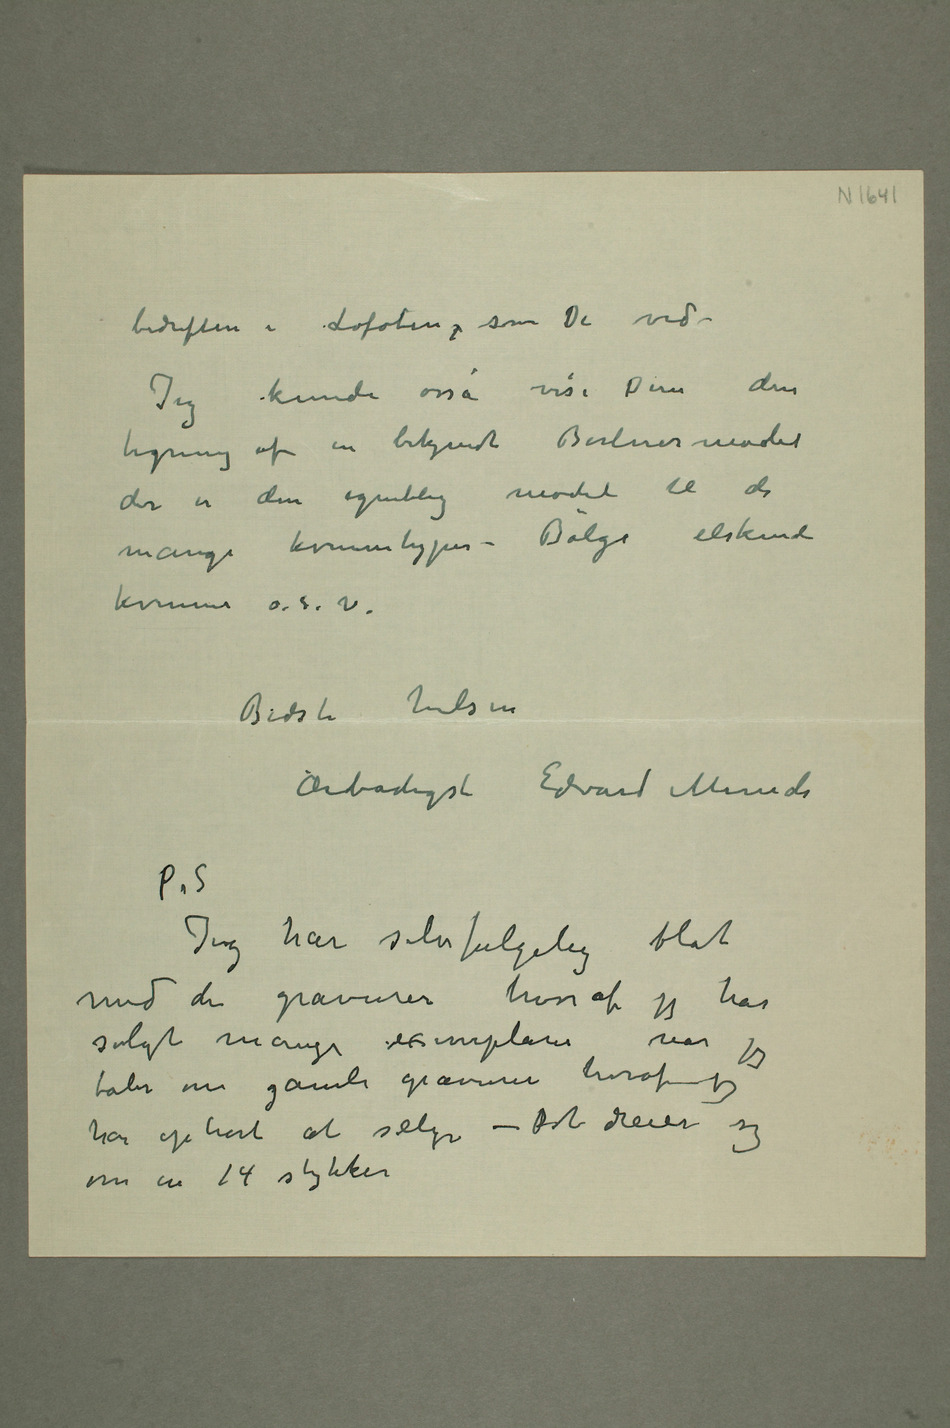 N 1641
bedriften i Lofoten, som De ved –
Jeg kunde også vise Dem den
tegning af en bekjendt Berlinermodel
der er den egentlig model til de
mange kvinnetyper – Bølge elskende
kvinner o.s.v.
Bedste hilsen
Ærbødigst Edvard Munch
P.S
Jeg har selvfølgelig blot
med de gravurer hvoraf jeg har
solgt mange exemplarer når jeg
taler om gamle gravurer hvoraf jeg
har ophørt at selge – Det dreier sig
om en 14 stykker